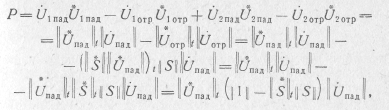 P = U̇₁пад Ů₁пад − U̇₁отр Ů₁отр + U̇₂пад Ů₂пад − U̇₂отр Ů₂отр =
= ‖Ůпад‖ₜ ‖U̇пад‖ − ‖Ůотр‖ₜ ‖U̇отр‖ = ‖Ůпад‖ₜ ‖U̇пад‖ −
− (‖S̊‖ ‖Ůпад‖)ₜ ‖S‖ ‖U̇пад‖ = ‖Ůпад‖ₜ ‖U̇пад‖ −
− ‖Ůпад‖ₜ ‖S̊‖ₜ ‖S‖ ‖U̇пад‖ = ‖Ůпад‖ₜ (‖1‖ − ‖S̊‖ₜ ‖S‖) ‖U̇пад‖,